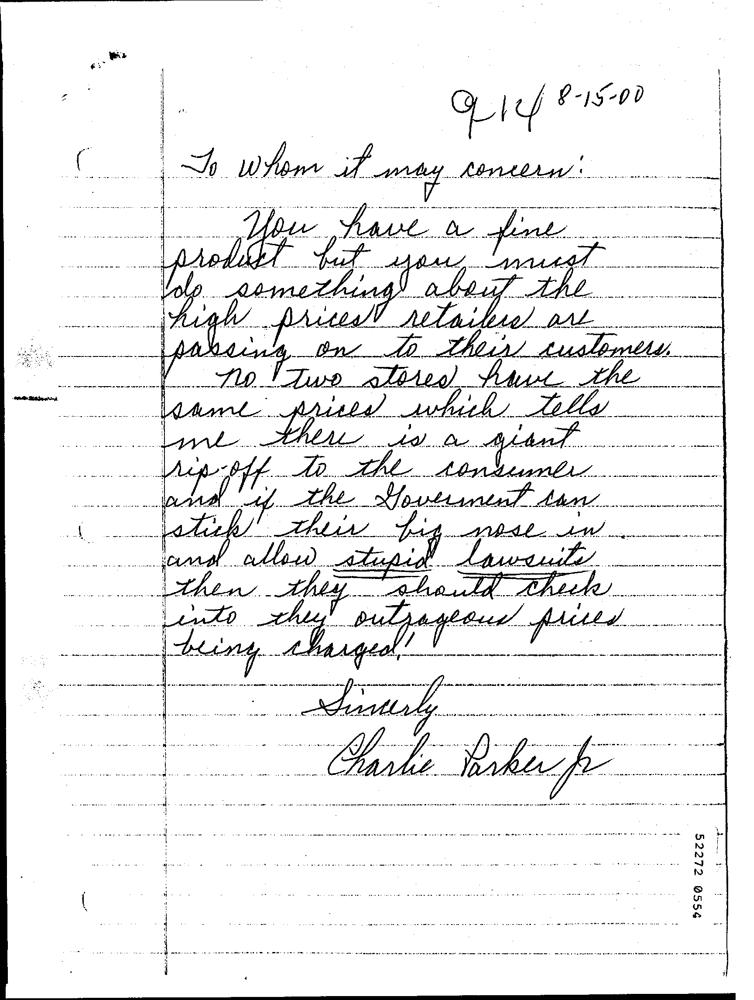 914 8-15-00
To Whom it may concern:
You have a fine
product but you must
do something about the
high prices retailers are
passing on to their customers.
No two stores have the
same prices which tells
me there is a giant
rip-off to the consumer
and if the Goverment can
stick their big nose in
and allow stupid lawsuits
then they should check
into they outrageous prices
being charged!
Sincerly
Charlie Parker Jr
52272 0554